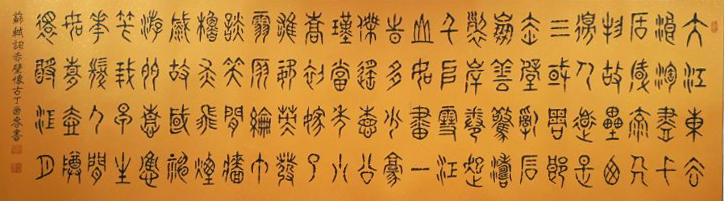 大江東去
浪淘盡千
古風流人
物故壘西
邊人道是
三國周郎
赤壁亂石
崩雲驚濤
裂岸捲起
千堆雪江
山如畫一
時多少豪
傑遙想公
瑾當年小
喬初嫁了
雄姿英發
羽扇綸巾
談笑間檣
櫓灰飛煙
滅故國神
遊多情應
笑我早生
華髮人間
如夢一樽
還酹江月
蘇軾詞赤壁懷古丁酉春書